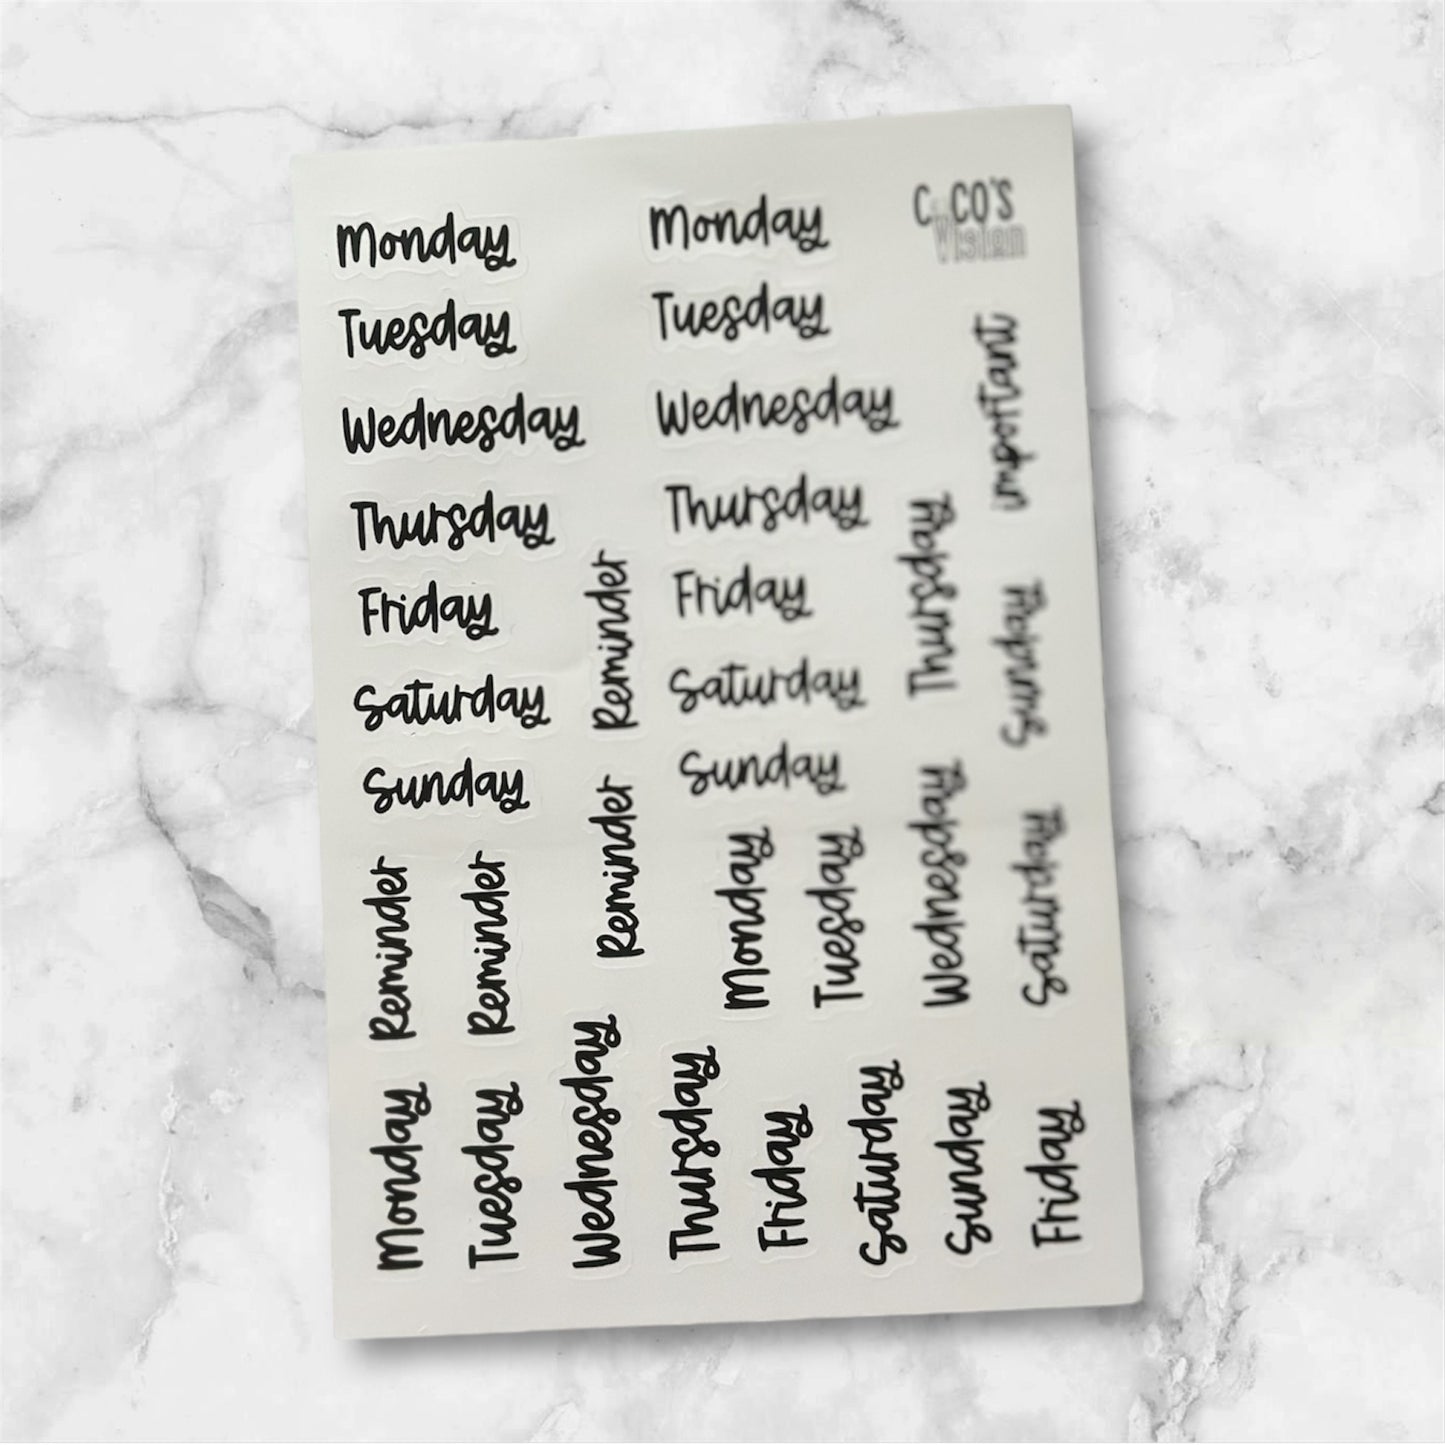 Monday
Tuesday
Wednesday
Thursday
Friday
Saturday
Sunday
Monday
Tuesday
Wednesday
Thursday
Friday
Saturday
Sunday
CoCO'S
Vision
important
Thursday
Sunday
Reminder
Reminder
Reminder
Reminder
Monday
Tuesday
Wednesday
Saturday
Monday
Tuesday
Wednesday
Thursday
Friday
Saturday
Sunday
Friday